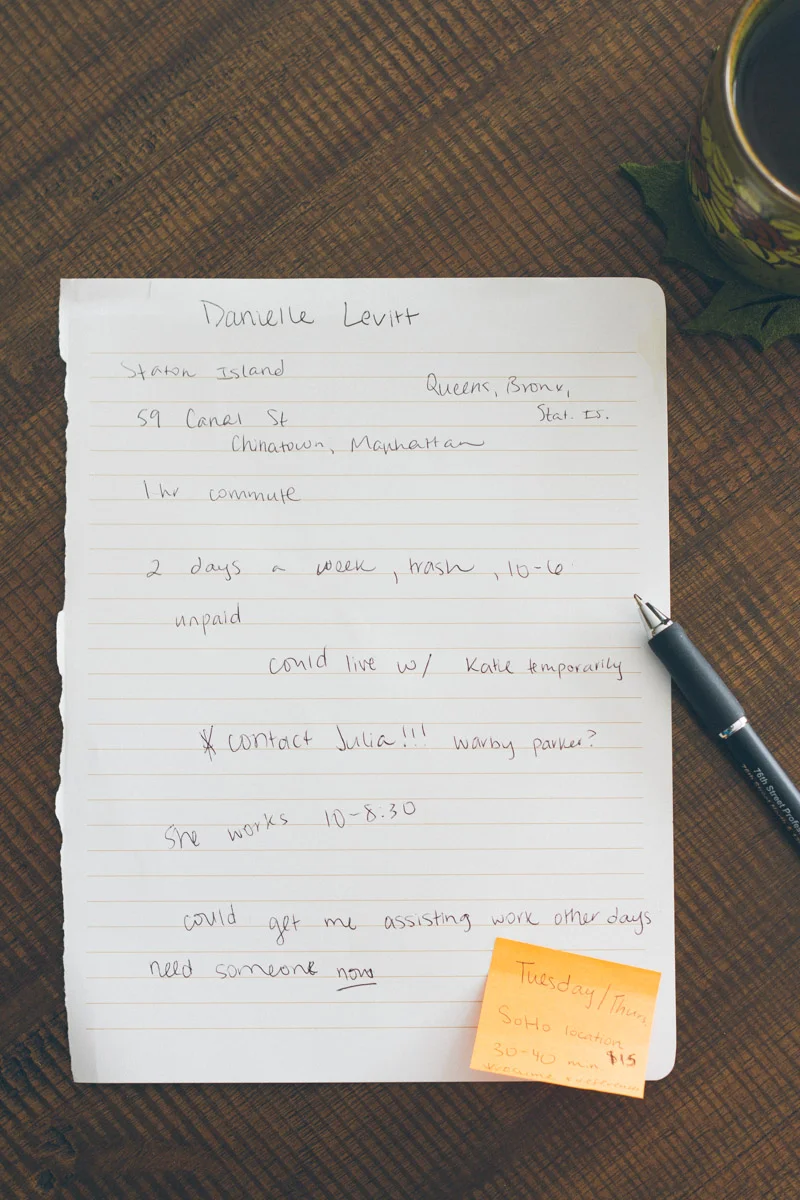 Danielle Levitt
Staton Island
Queens, Bronx,
Stat. Is.
59 Canal St
Chinatown, Manhattan
1 hr commute
2 days a week, trash, 10-6
unpaid
could live w/ Katie temporarily
* contact Julia!!! warby parker?
She works 10-8:30
could get me assisting work other days
need someone now
Tuesday/Thurs
SoHo location
30-40 min $15
76th Street